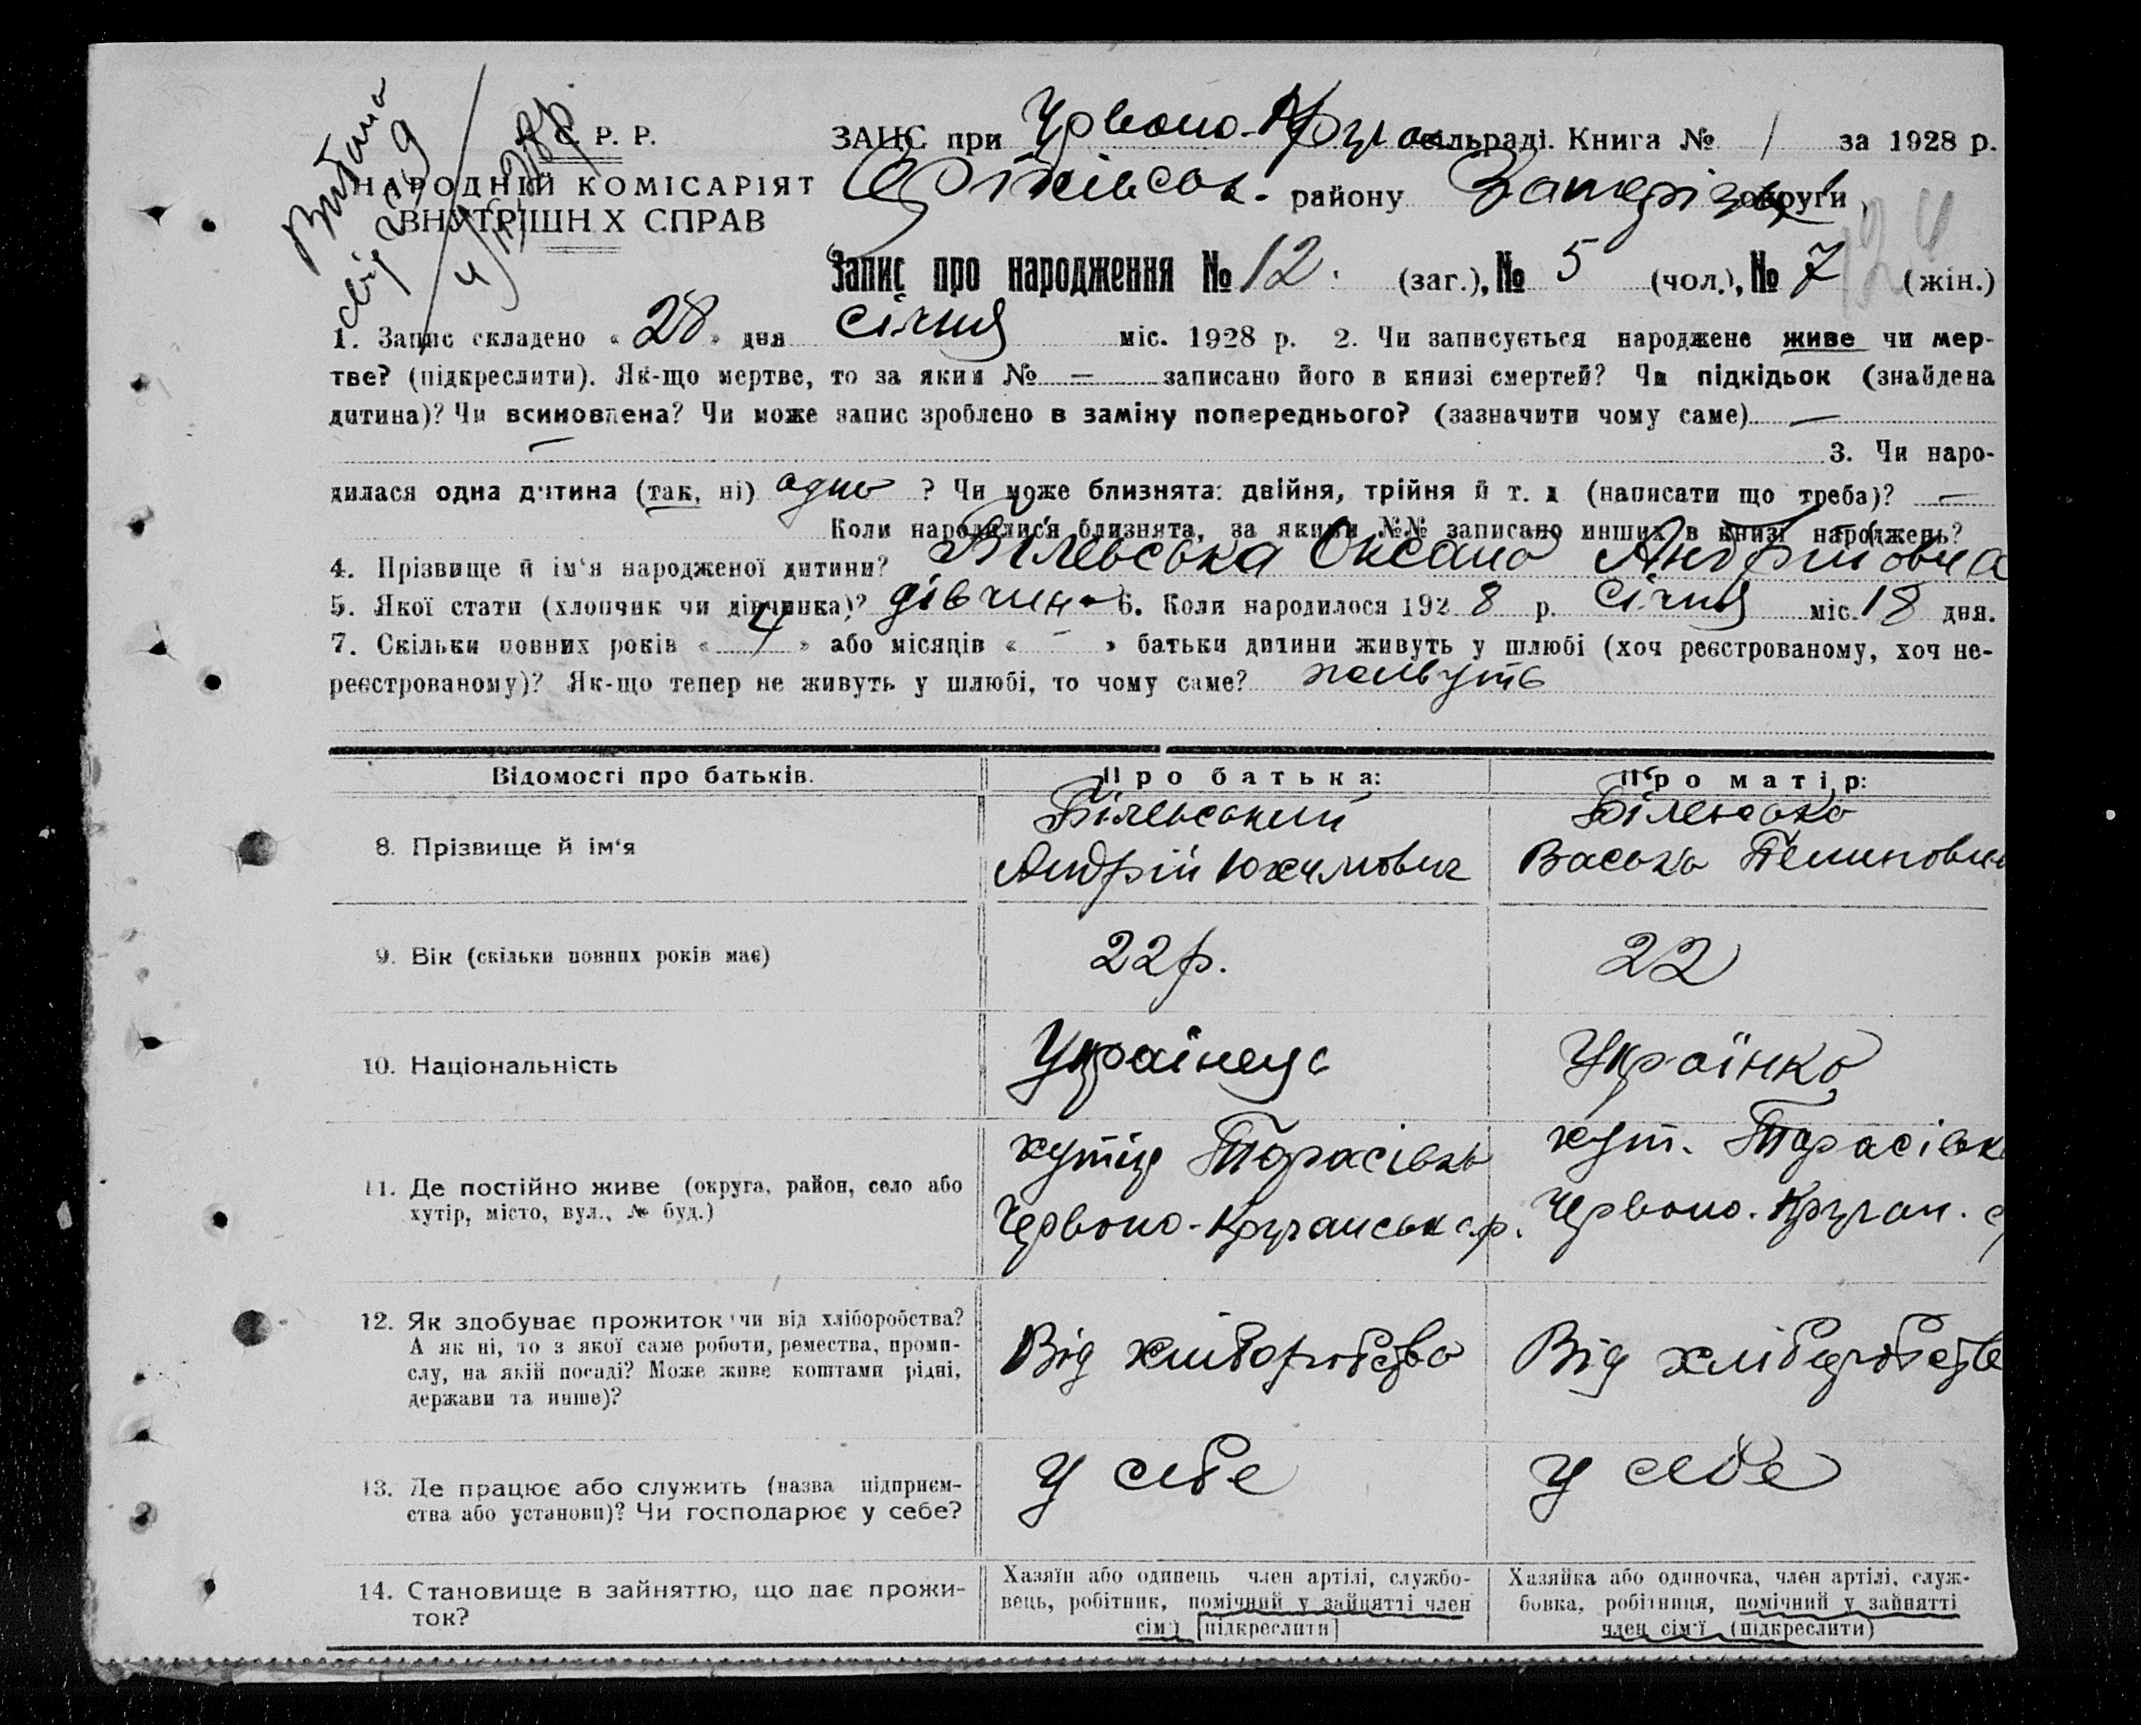 Видана
С. Р. Р.
НАРОДНІЙ КОМІСАРІЯТ
ВНУТРІШН Х СПРАВ
ЗАЦС при Червоно- сільраді. Книга № 1 за 1928 р.
району округи
Запис про народження № 12. (заг.), № 5 (чол.), № 7 (жін.)
1. Запис складено « 28 » дня січня міс. 1928 р. 2. Чи записується народжене живе чи мер-
тве? (підкреслити). Як-що мертве, то за яким № — записано його в книзі смертей? Чи підкідьок (знайдена
дитина)? Чи всиновлена? Чи може запис зроблено в заміну попереднього? (зазначити чому саме) —
— 3. Чи наро-
дилася одна дитина (так, ні) одно ? Чи може близнята: двійня, трійня й т. д (написати що треба)? —
Коли народилися близнята, за якими №№ записано инших в книзі народжень?
4. Прізвище й ім'я народженої дитини? Білевська Оксана Андріївна
5. Якої стати (хлопчик чи дівчинка)? дівчинка 6. Коли народилося 192 8 р. січня міс. 18 дня.
7. Скільки повних років « 4 » або місяців « – » батьки дитини живуть у шлюбі (хоч реєстрованому, хоч не-
реєстрованому)? Як-що тепер не живуть у шлюбі, то чому саме? живуть
Відомості про батьків. Про батька: Про матір:
8. Прізвище й ім'я
Білевський Білевська
Андрій Юхимович Васька
9. Вік (скільки повних років має) 22 р. 22
10. Національність Українець Українка
11. Де постійно живе (округа, район, село або
хутір, місто, вул., № буд.)
хутір Тарасівка хут. Тарасівка
Червоно-Кручанськ с.р. Червоно-Кручан. с
12. Як здобуває прожиток чи від хліборобства?
А як ні, то з якої саме роботи, ремества, проми-
слу, на якій посаді? Може живе коштами рідні,
держави та инше)?
Від хліборобства Від хліборобства
13. Де працює або служить (назва підприєм-
ства або установи)? Чи господарює у себе?
У себе У себе
14. Становище в зайняттю, що дає прожи-
ток?
Хазяїн або одинець член артілі, службо-
вець, робітник, помічний у зайнятті член
сім'ї [підкреслити]
Хазяйка або одиночка, член артілі, служ-
бовка, робітниця, помічний у зайнятті
член сім'ї (підкреслити)